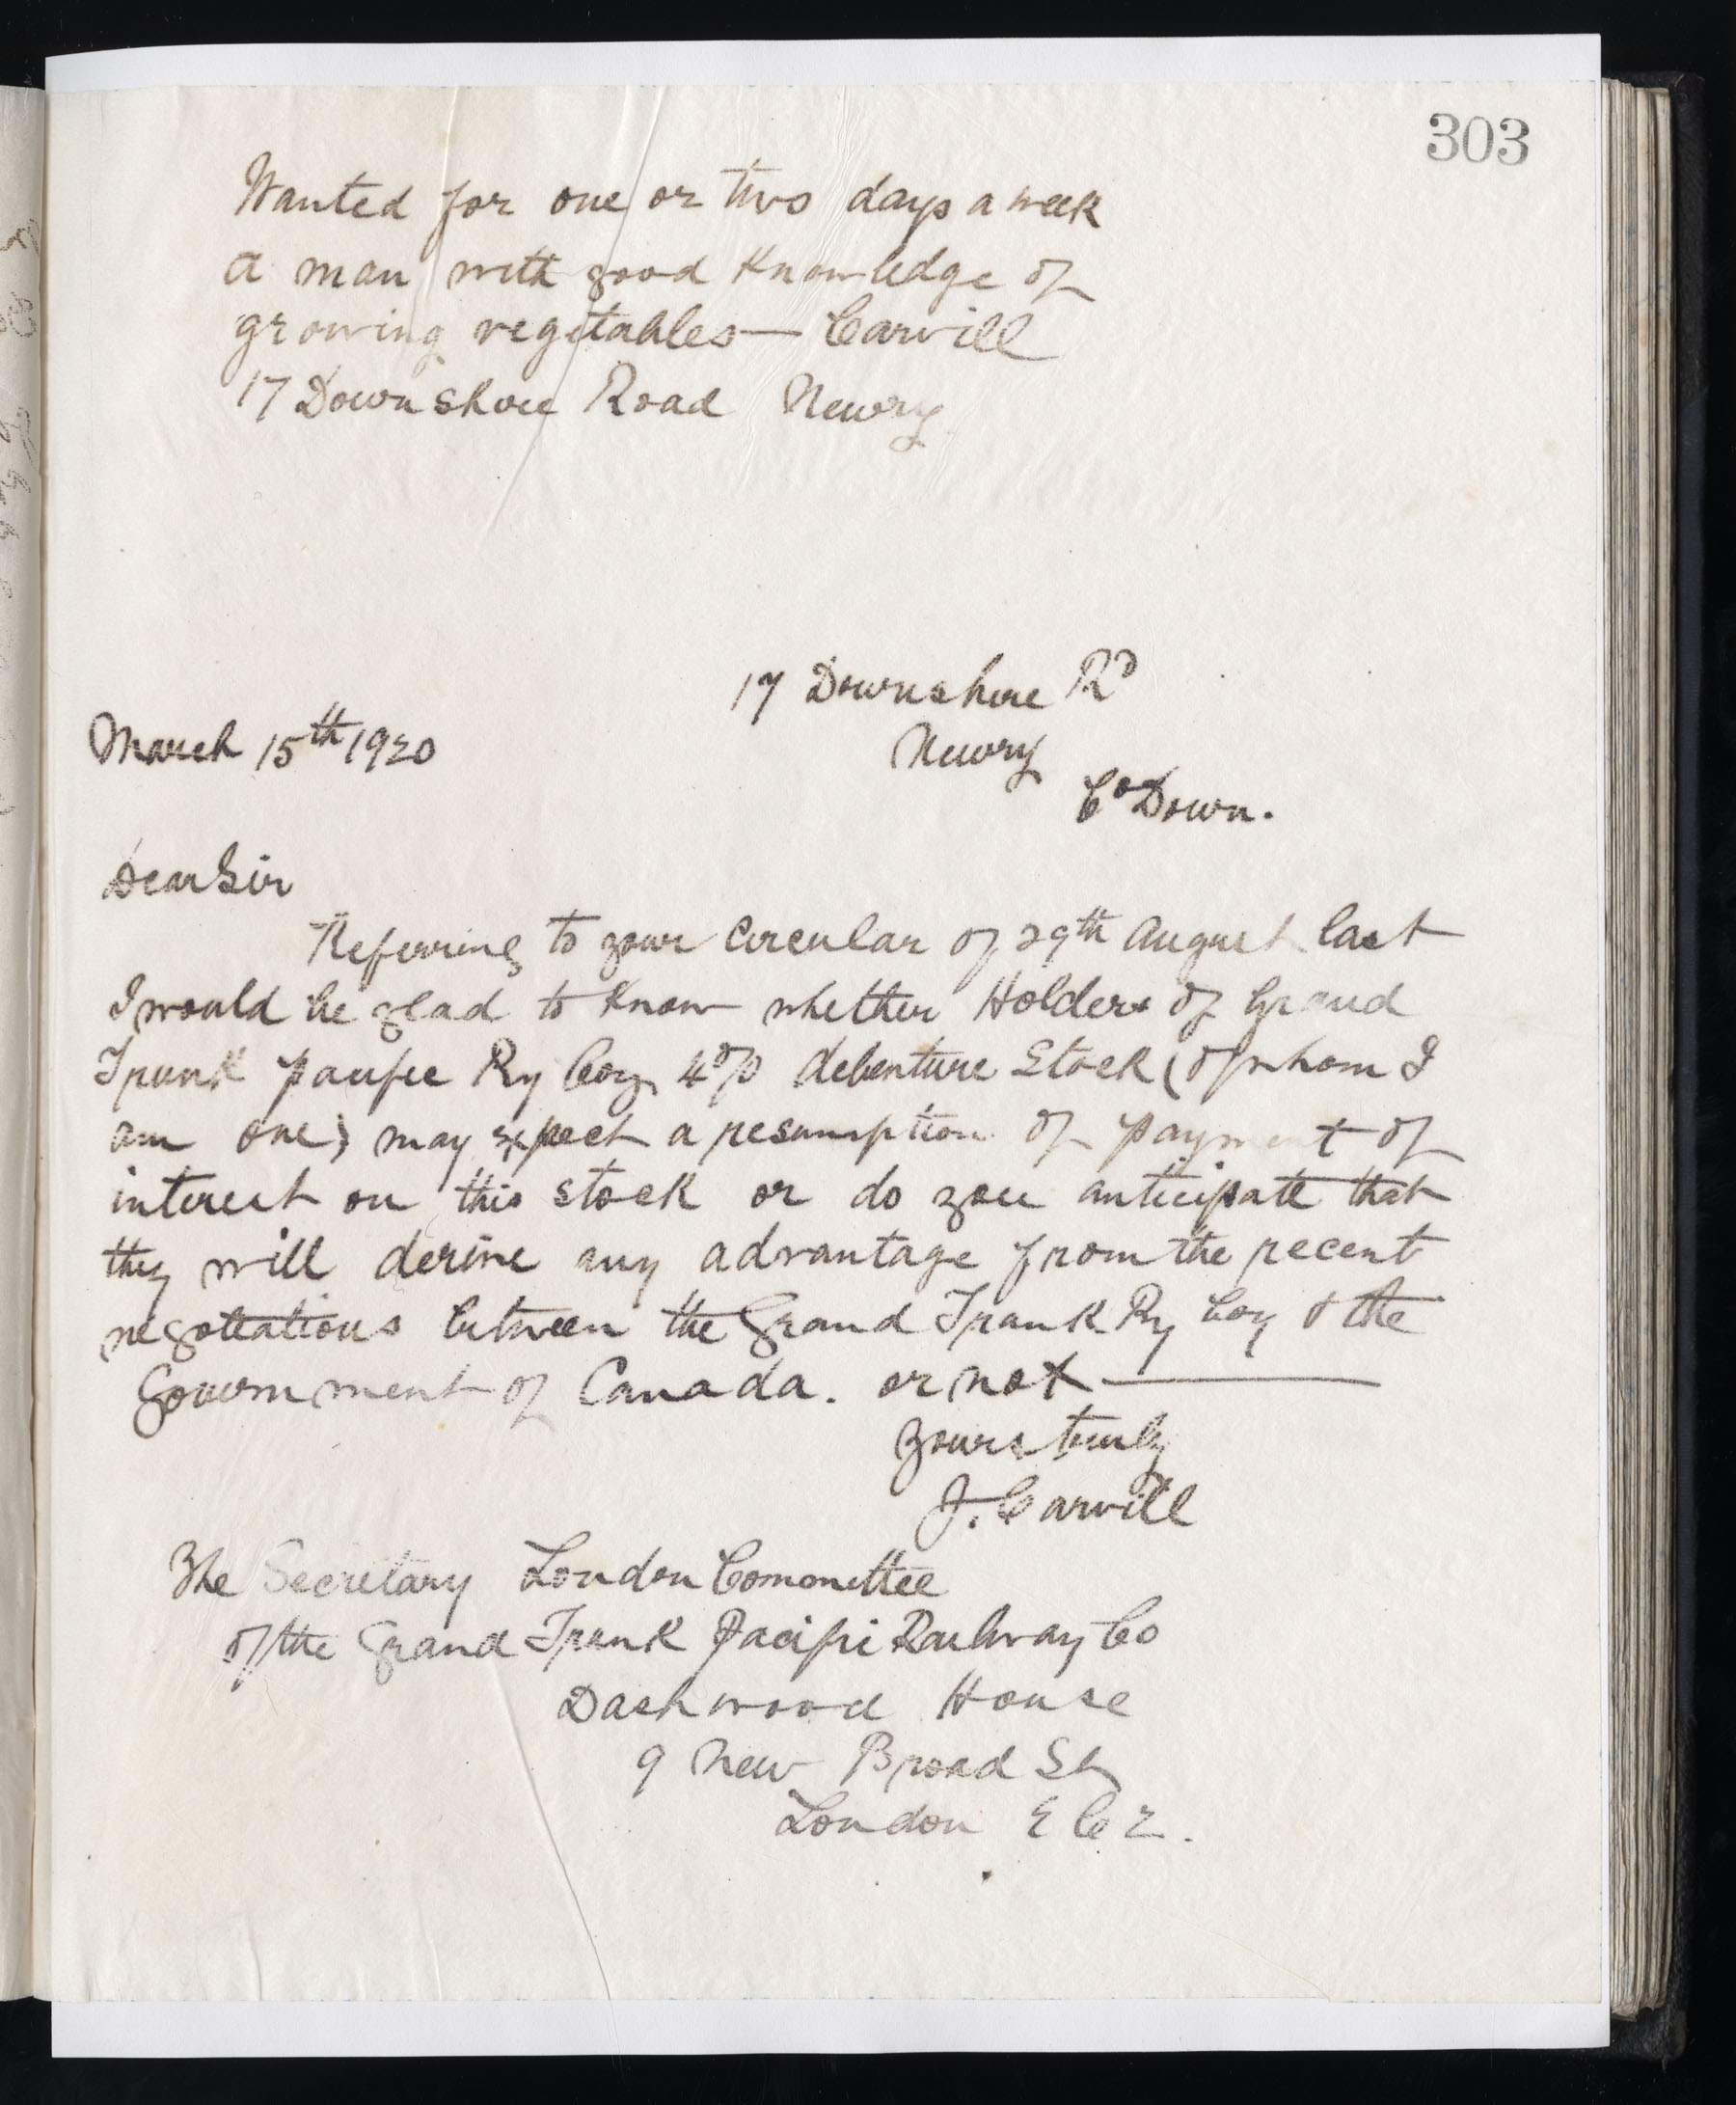 303
Wanted for one or two days a week
a man with good knowledge of
growing vegetables — Carvill
17 Downshire Road Newry
17 Downshire Rd
March 15th 1920
Newry
Co Down.
Dear Sir
Referring to your circular of 29th August last
I would be glad to know whether Holders of Grand
Trunk Pacific Ry Coy 4% debenture Stock (of whom I
am one) may expect a resumption of payment of
interest on this stock or do you anticipate that
they will derive any advantage from the recent
negotiations between the Grand Trunk Ry Coy & the
Government of Canada. or not —
Yours truly
J. Carvill
The Secretary London Committee
of the Grand Trunk Pacific Railway Co
Dashwood House
9 New Broad St
London E C 2.